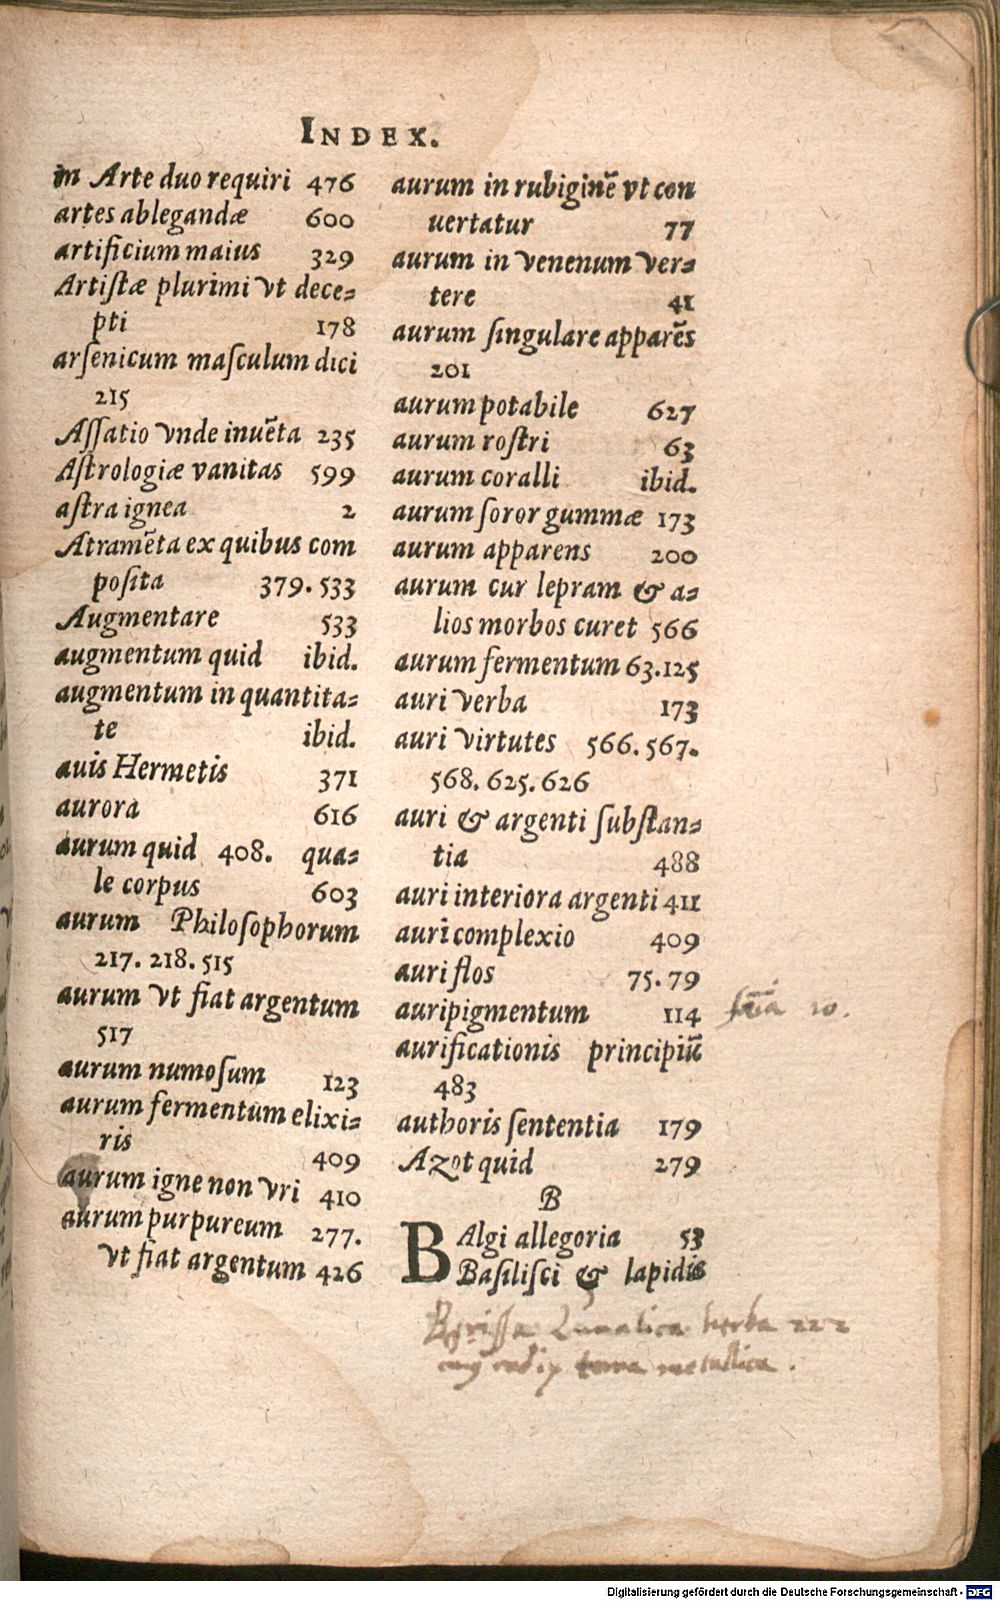 INDEX.
in Arte duo requiri 476
artes ablegandæ 600
artificium maius 329
Artiſtæ plurimi vt dece-
pti 178
arſenicum maſculum dici
215
Aſſatio vnde inuēta 235
Aſtrologiæ vanitas 599
aſtra ignea 2
Atramēta ex quibus com
poſita 379. 533
Augmentare 533
augmentum quid ibid.
augmentum in quantita-
te ibid.
auis Hermetis 371
aurora 616
aurum quid 408. qua-
le corpus 603
aurum Philoſophorum
217. 218. 515
aurum vt fiat argentum
517
aurum numoſum 123
aurum fermentum elixi-
ris 409
aurum igne non vri 410
aurum purpureum 277.
vt fiat argentum 426
aurum in rubiginē vt con
uertatur 77
aurum in venenum ver-
tere 41
aurum ſingulare apparēs
201
aurum potabile 627
aurum roſtri 63
aurum coralli ibid.
aurum ſoror gummæ 173
aurum apparens 200
aurum cur lepram & a-
lios morbos curet 566
aurum fermentum 63.125
auri verba 173
auri virtutes 566. 567.
568. 625. 626
auri & argenti ſubſtan-
tia 488
auri interiora argenti 411
auri complexio 409
auri flos 75. 79
auripigmentum 114
10.
aurificationis principiū
483
authoris ſententia 179
Azot quid 279
B
BAlgi allegoria 53
Baſiliſci & lapidis
Lunatica herba 222
terra metallica.
Digitalisierung gefördert durch die Deutsche Forschungsgemeinschaft - DFG